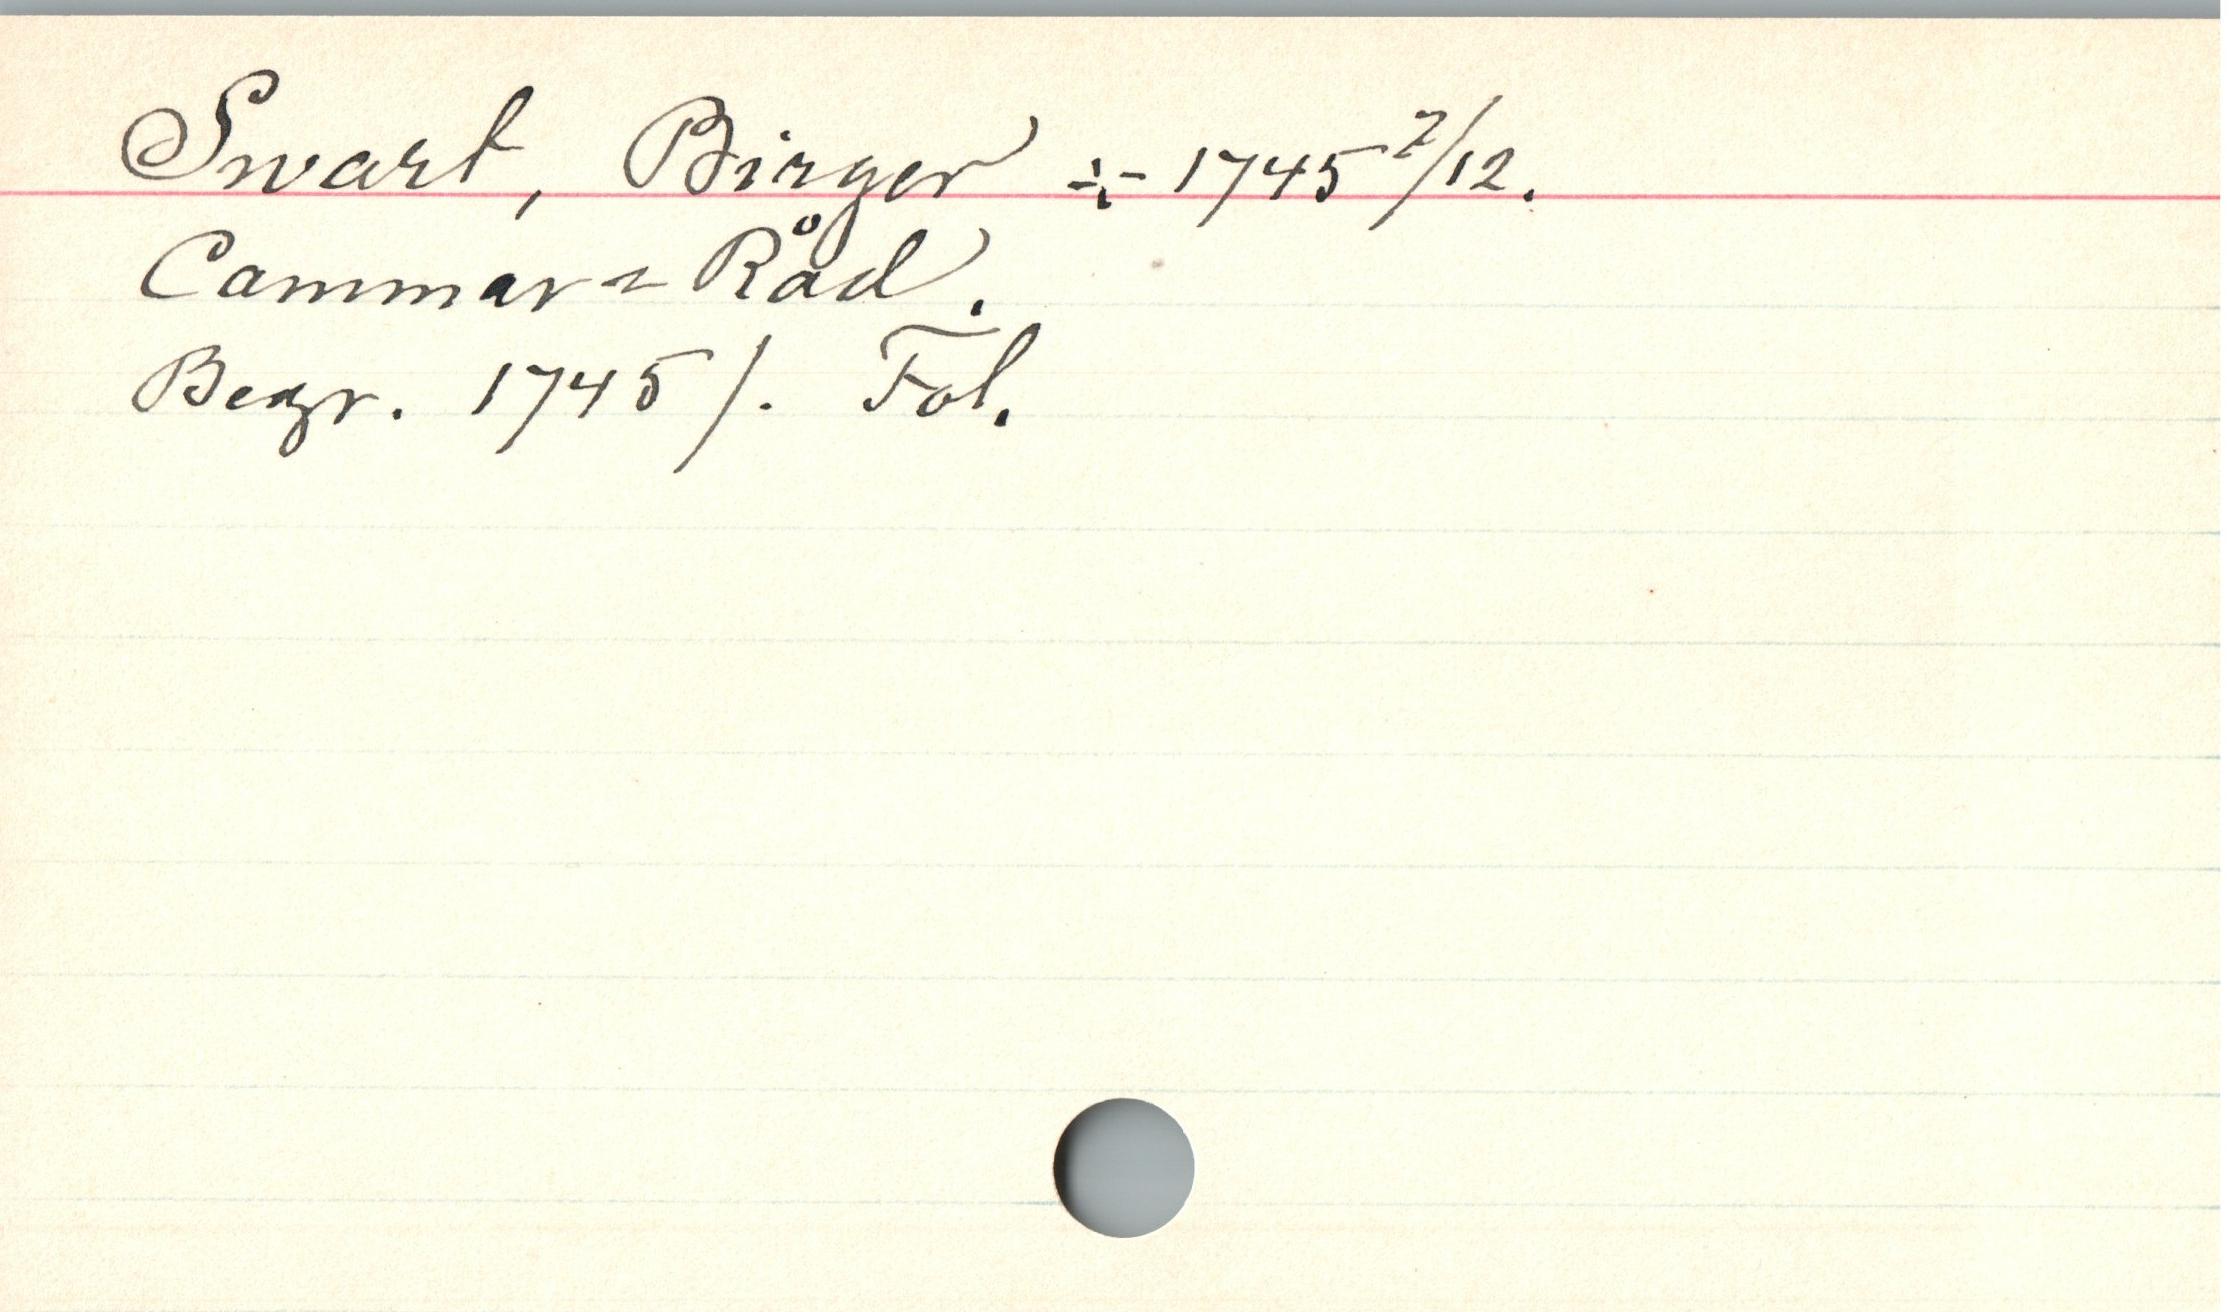 Swart, Birger ÷ 1745 2/12.
Cammar-Råd.
Begr. 1745/. Fol.